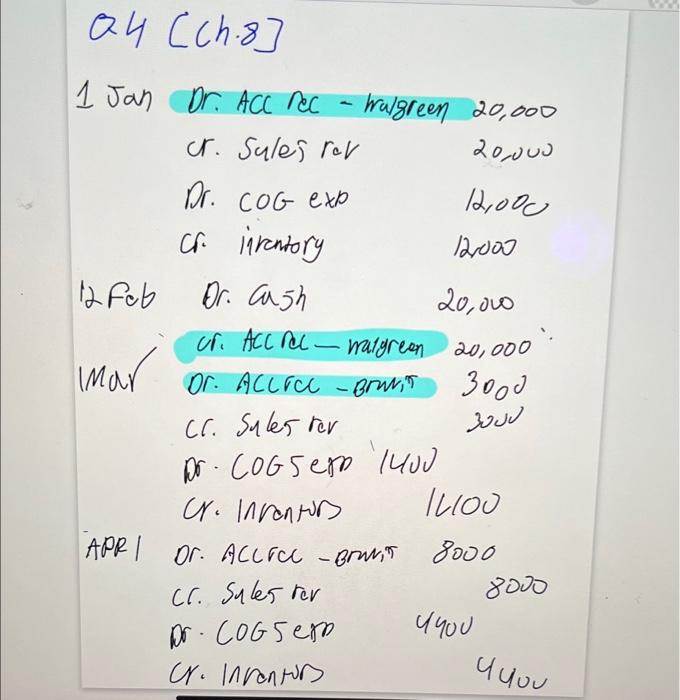 Q4 [Ch.8]
1 Jan Dr. Acc rec - Walgreen 20,000
cr. Sales rev 20,000
Dr. COG exp 12,000
cr. inventory 12,000
12 Feb Dr. Cash 20,000
cr. Acc rec - Walgreen 20,000
1 Mar Dr. Acc rec - 3000
cr. Sales rev 3000
Dr. COGS exp 1400
cr. Inventory 1400
APR 1 Dr. Acc rec - 8000
cr. Sales rev 8000
Dr. COGS exp 4400
cr. Inventory 4400